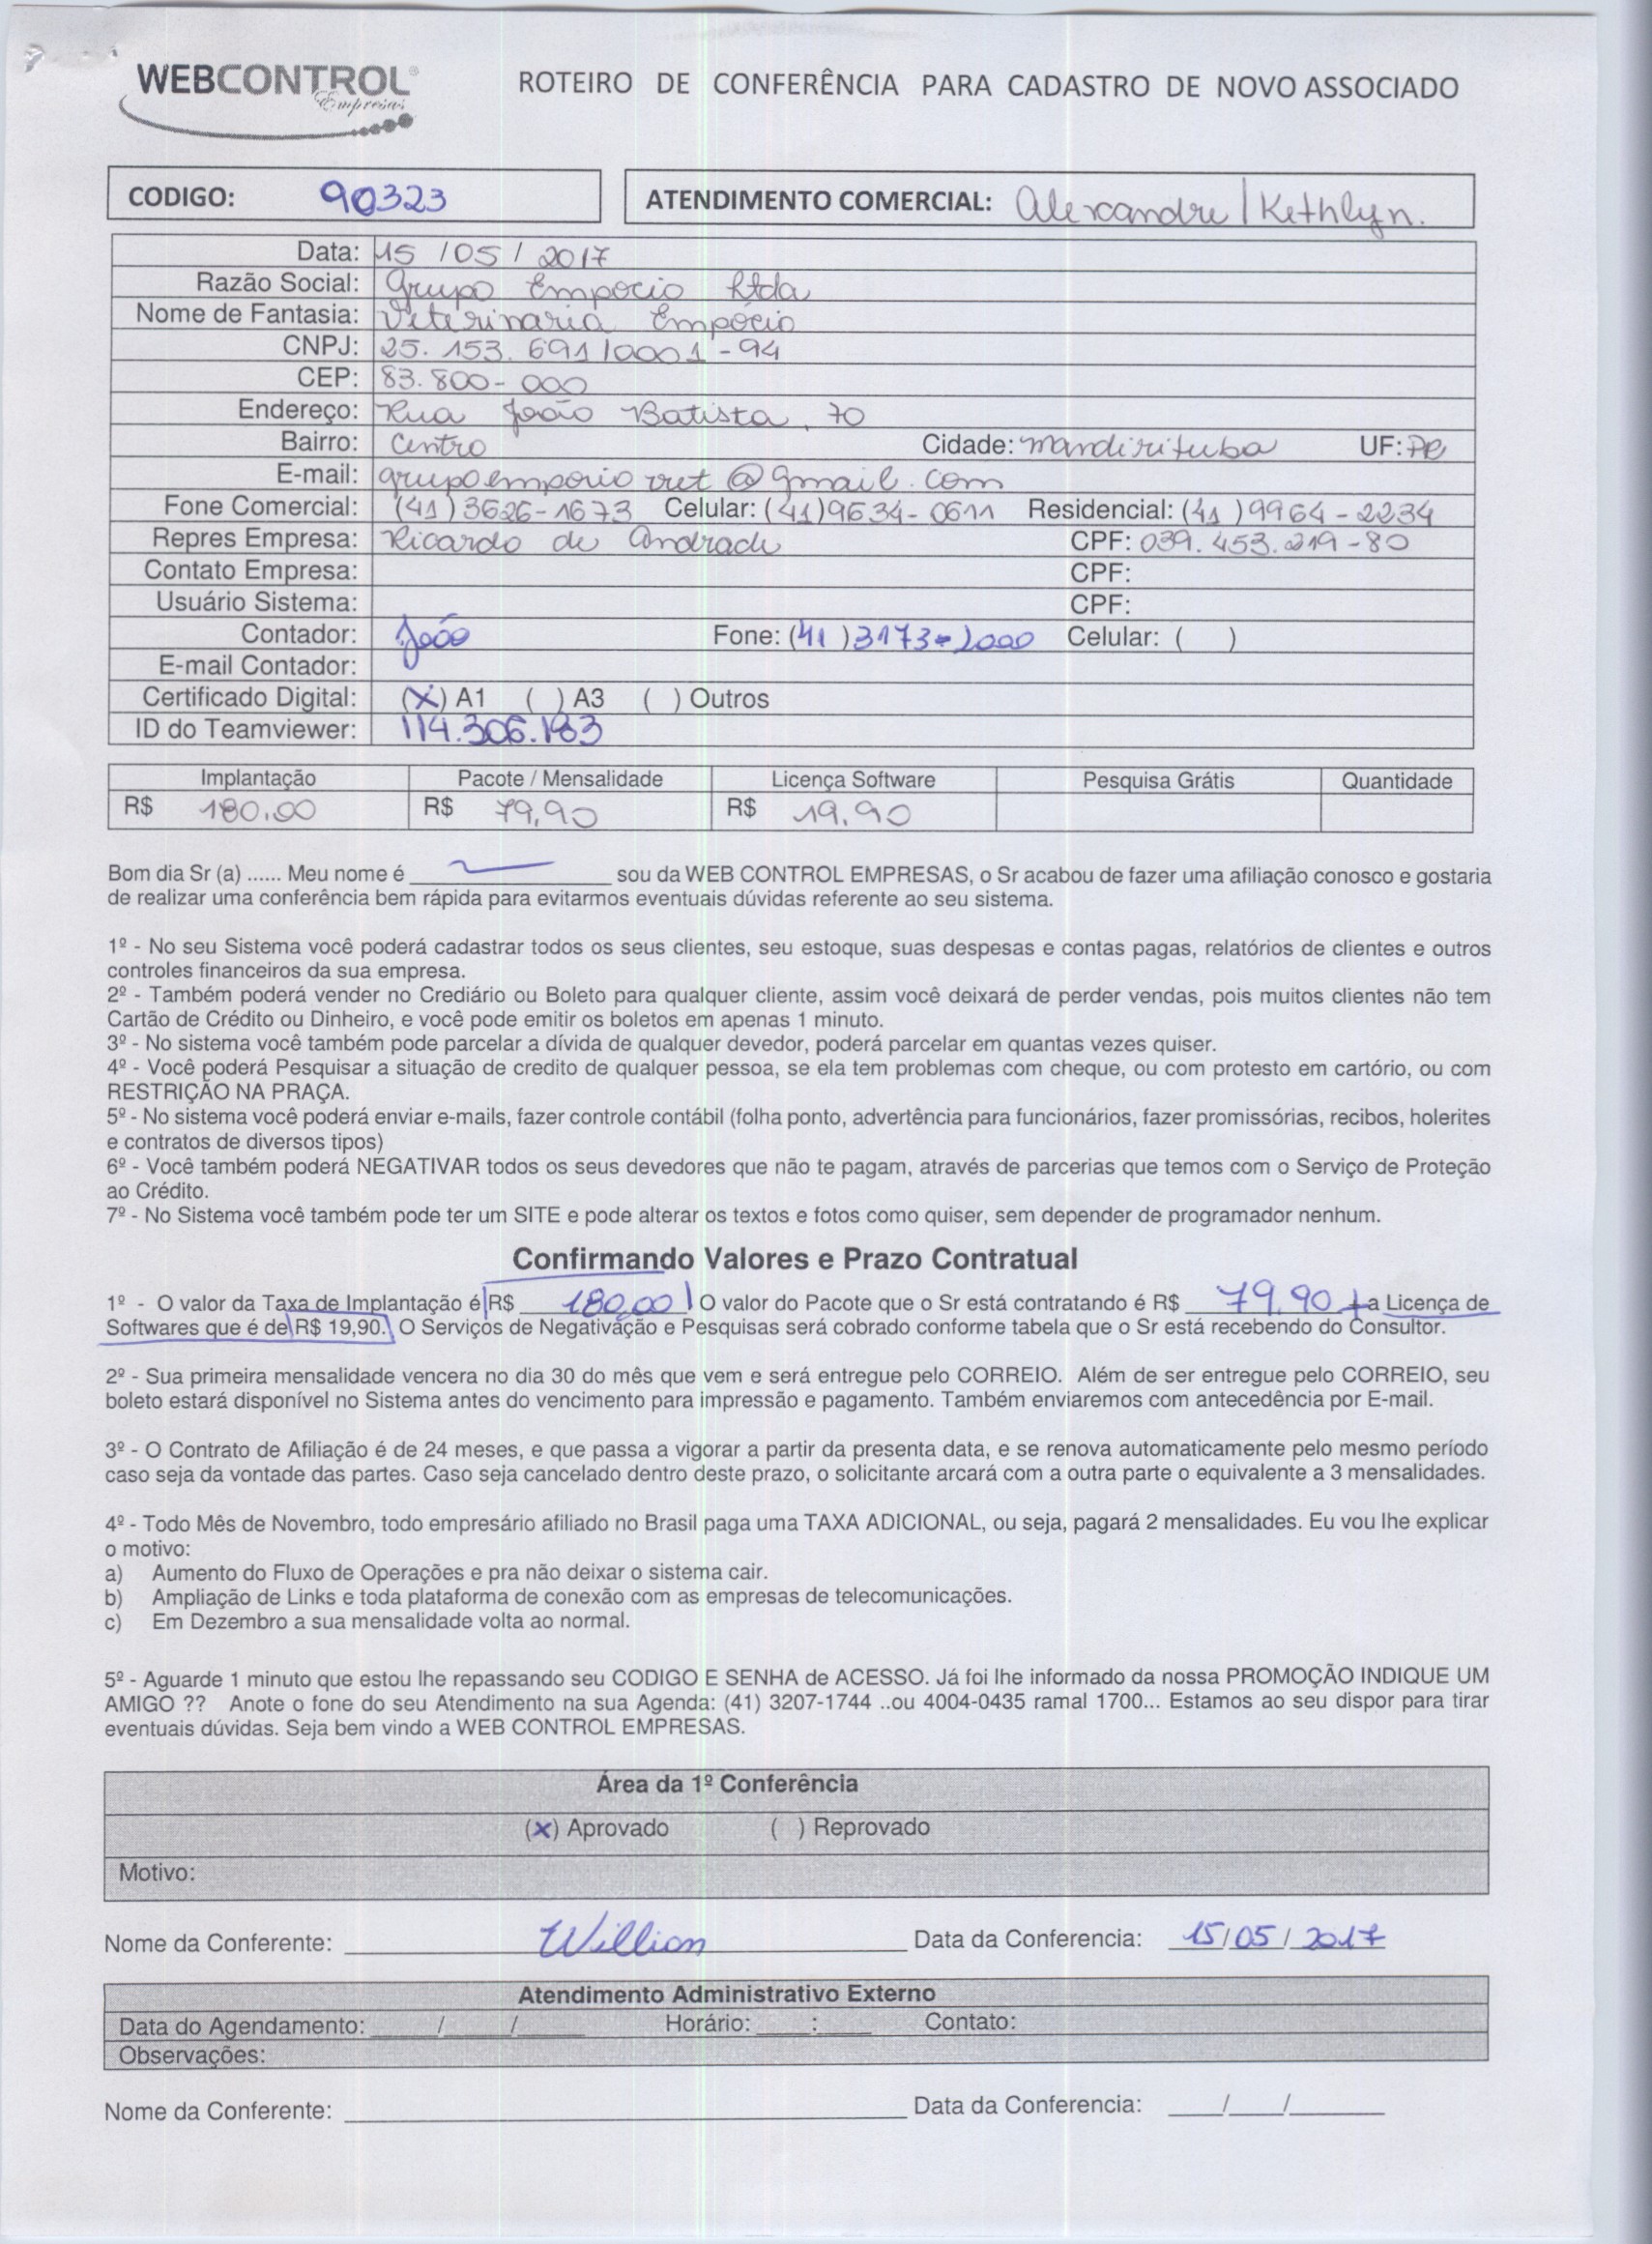 WEBCONTROL®
Empresas
ROTEIRO DE CONFERÊNCIA PARA CADASTRO DE NOVO ASSOCIADO
CODIGO: 90323
ATENDIMENTO COMERCIAL: Alexandre / Kethlyn.
Data: 15 / 05 / 2017
Razão Social: Grupo Empocio Ltda
Nome de Fantasia: Veterinaria Empócio
CNPJ: 25.153.691/0001-94
CEP: 83.800-000
Endereço: Rua João Batista, 70
Bairro: Centro Cidade: Mandirituba UF: PR
E-mail: grupoemporiovet@gmail.com
Fone Comercial: (41)3626-1673 Celular: (41)9634-0611 Residencial: (41)9964-2234
Repres Empresa: Ricardo de Andrade CPF: 039.453.219-80
Contato Empresa: CPF:
Usuário Sistema: CPF:
Contador: João Fone: (41)3173-2000 Celular: ( )
E-mail Contador:
Certificado Digital: (X) A1 ( ) A3 ( ) Outros
ID do Teamviewer: 114.306.183
Implantação Pacote / Mensalidade Licença Software Pesquisa Grátis Quantidade
R$ 180,00 R$ 79,90 R$ 19,90
Bom dia Sr (a) ...... Meu nome é ______ sou da WEB CONTROL EMPRESAS, o Sr acabou de fazer uma afiliação conosco e gostaria
de realizar uma conferência bem rápida para evitarmos eventuais dúvidas referente ao seu sistema.
1º - No seu Sistema você poderá cadastrar todos os seus clientes, seu estoque, suas despesas e contas pagas, relatórios de clientes e outros
controles financeiros da sua empresa.
2º - Também poderá vender no Crediário ou Boleto para qualquer cliente, assim você deixará de perder vendas, pois muitos clientes não tem
Cartão de Crédito ou Dinheiro, e você pode emitir os boletos em apenas 1 minuto.
3º - No sistema você também pode parcelar a dívida de qualquer devedor, poderá parcelar em quantas vezes quiser.
4º - Você poderá Pesquisar a situação de credito de qualquer pessoa, se ela tem problemas com cheque, ou com protesto em cartório, ou com
RESTRIÇÃO NA PRAÇA.
5º - No sistema você poderá enviar e-mails, fazer controle contábil (folha ponto, advertência para funcionários, fazer promissórias, recibos, holerites
e contratos de diversos tipos)
6º - Você também poderá NEGATIVAR todos os seus devedores que não te pagam, através de parcerias que temos com o Serviço de Proteção
ao Crédito.
7º - No Sistema você também pode ter um SITE e pode alterar os textos e fotos como quiser, sem depender de programador nenhum.
Confirmando Valores e Prazo Contratual
1º - O valor da Taxa de Implantação é R$ 180,00 O valor do Pacote que o Sr está contratando é R$ 79,90 + a Licença de
Softwares que é de R$ 19,90. O Serviços de Negativação e Pesquisas será cobrado conforme tabela que o Sr está recebendo do Consultor.
2º - Sua primeira mensalidade vencera no dia 30 do mês que vem e será entregue pelo CORREIO. Além de ser entregue pelo CORREIO, seu
boleto estará disponível no Sistema antes do vencimento para impressão e pagamento. Também enviaremos com antecedência por E-mail.
3º - O Contrato de Afiliação é de 24 meses, e que passa a vigorar a partir da presenta data, e se renova automaticamente pelo mesmo período
caso seja da vontade das partes. Caso seja cancelado dentro deste prazo, o solicitante arcará com a outra parte o equivalente a 3 mensalidades.
4º - Todo Mês de Novembro, todo empresário afiliado no Brasil paga uma TAXA ADICIONAL, ou seja, pagará 2 mensalidades. Eu vou lhe explicar
o motivo:
a) Aumento do Fluxo de Operações e pra não deixar o sistema cair.
b) Ampliação de Links e toda plataforma de conexão com as empresas de telecomunicações.
c) Em Dezembro a sua mensalidade volta ao normal.
5º - Aguarde 1 minuto que estou lhe repassando seu CODIGO E SENHA de ACESSO. Já foi lhe informado da nossa PROMOÇÃO INDIQUE UM
AMIGO ?? Anote o fone do seu Atendimento na sua Agenda: (41) 3207-1744 ..ou 4004-0435 ramal 1700... Estamos ao seu dispor para tirar
eventuais dúvidas. Seja bem vindo a WEB CONTROL EMPRESAS.
Área da 1º Conferência
(x) Aprovado ( ) Reprovado
Motivo:
Nome da Conferente: Willian Data da Conferencia: 15/05/2017
Atendimento Administrativo Externo
Data do Agendamento: ____/____/____ Horário: ____:____ Contato:
Observações:
Nome da Conferente: ______ Data da Conferencia: ____/____/____